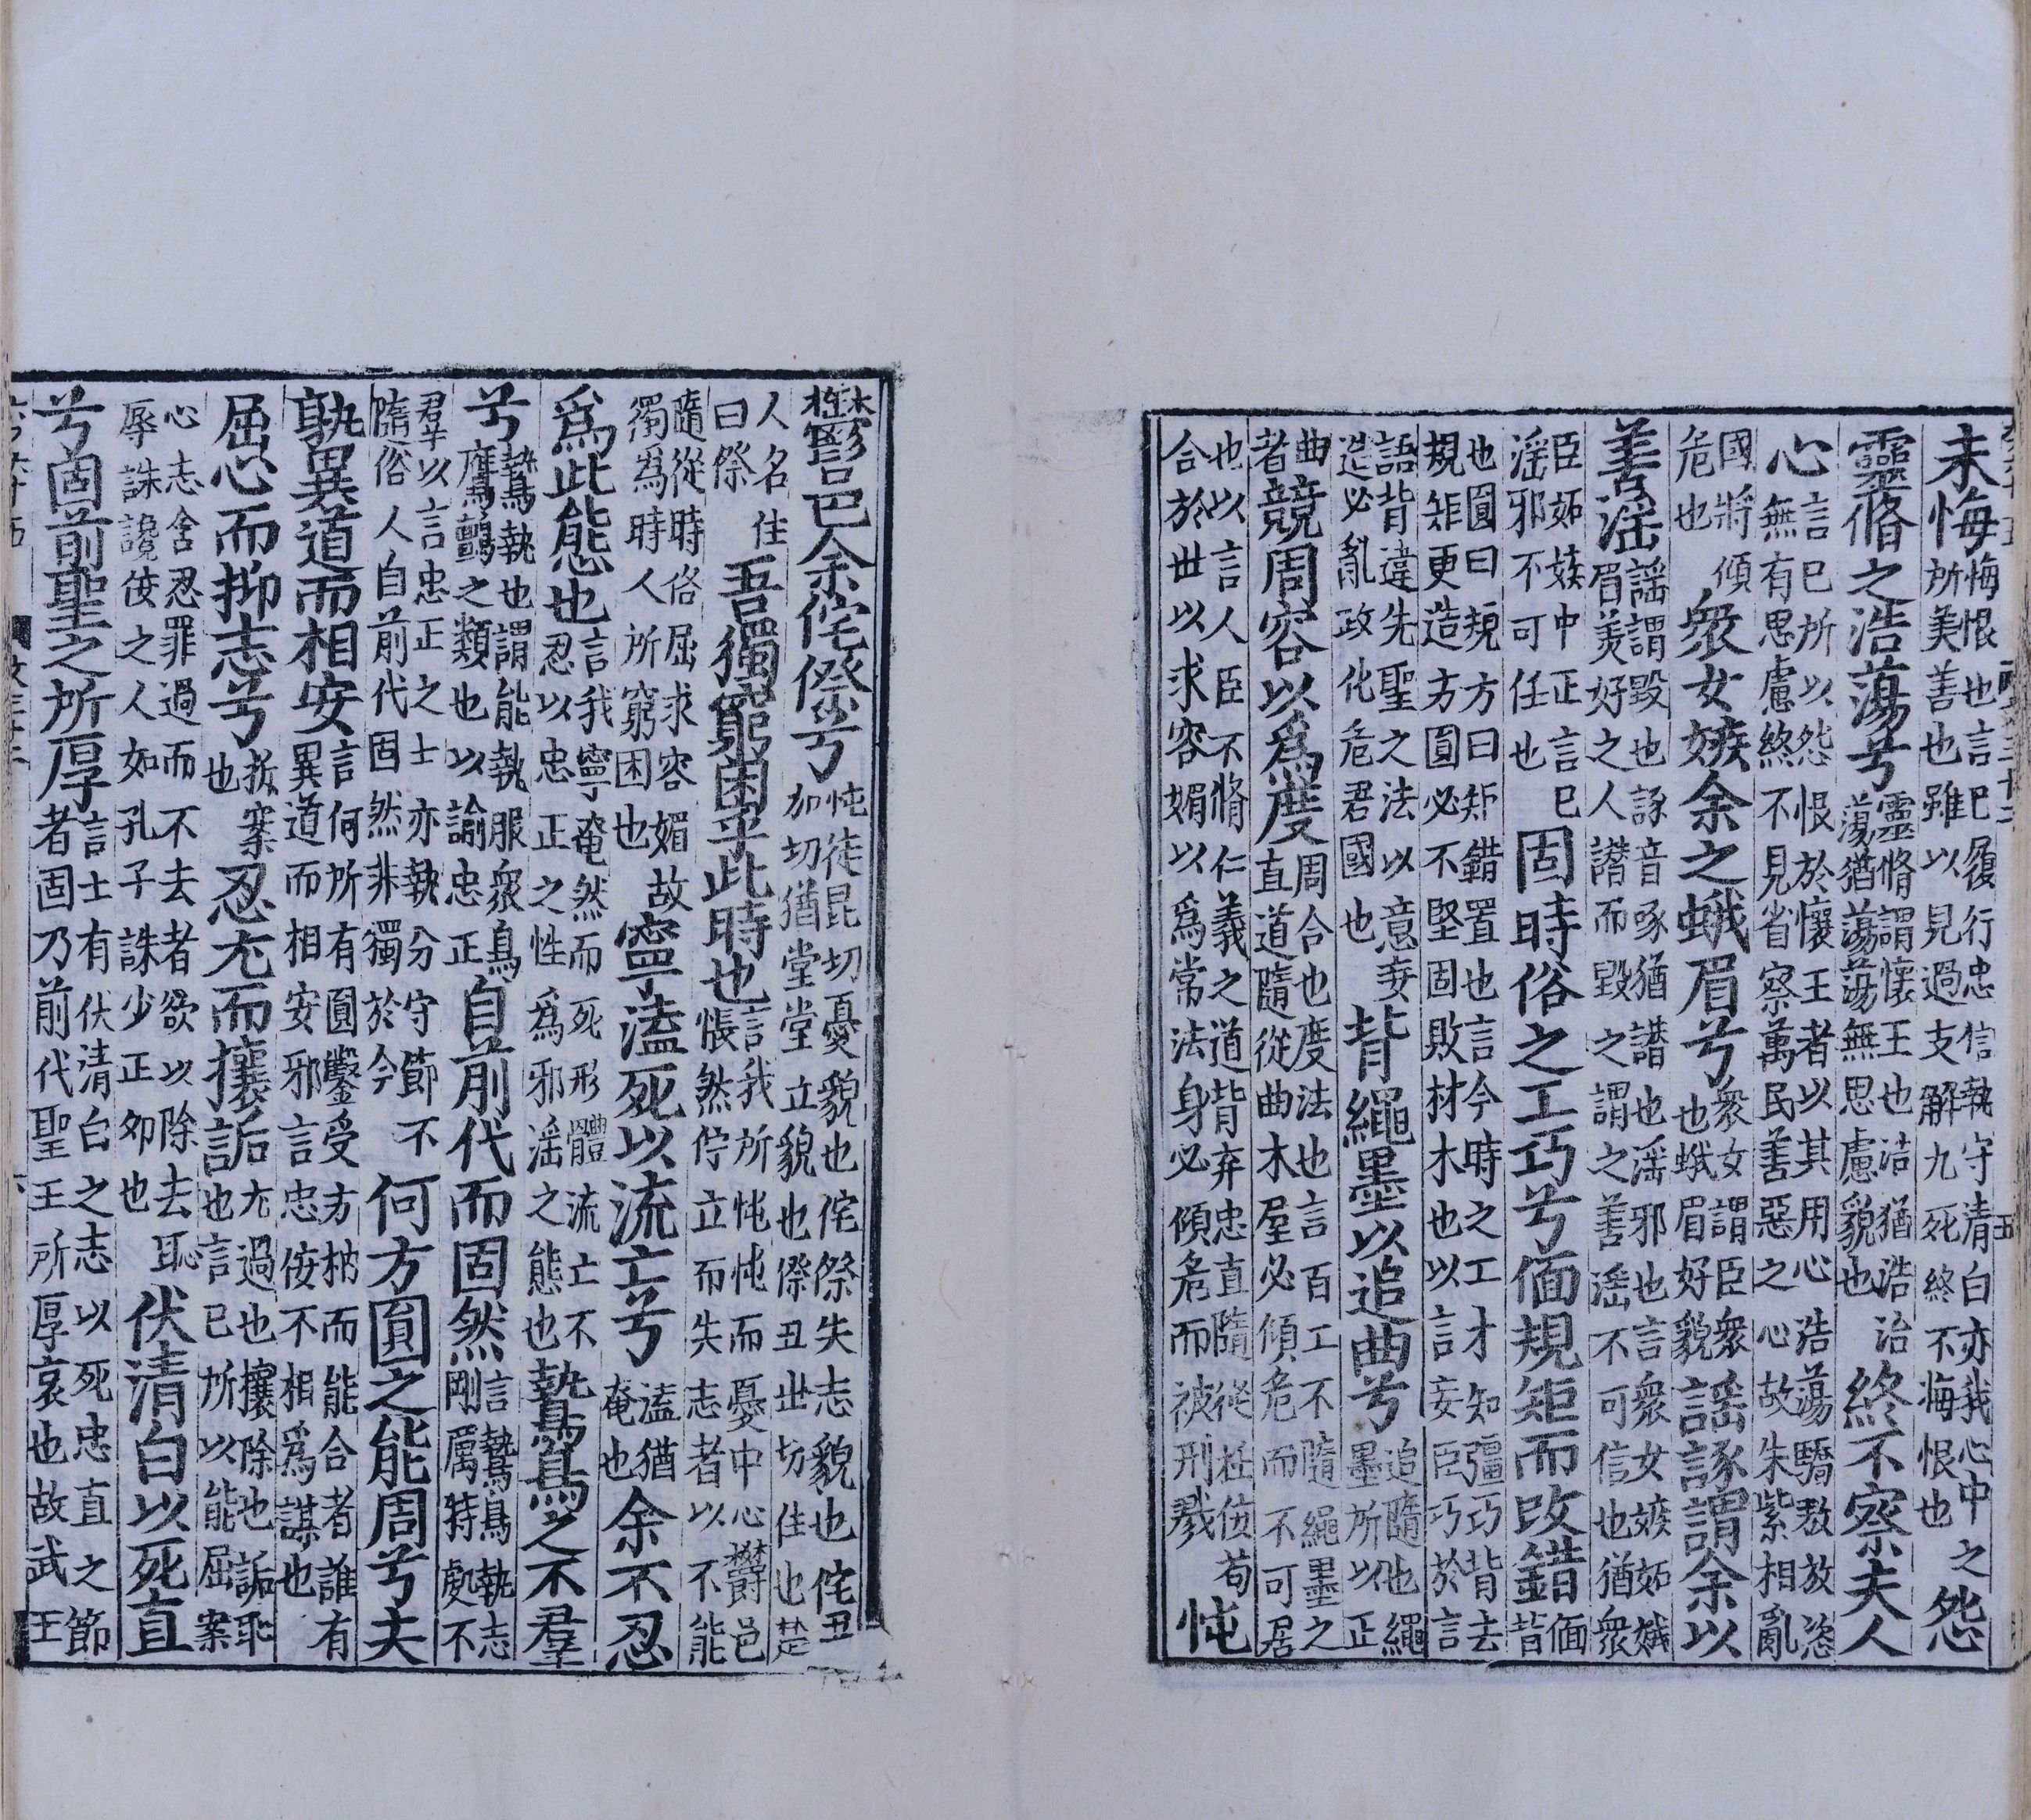 未悔悔恨也言己履行忠信執守清白亦我心中之所美善也雖以見過支解九死終不悔恨也怨
靈脩之浩蕩兮靈脩謂懷王也浩猶浩浩蕩猶蕩蕩無思慮貌也終不察夫人
心言己所以怨恨於懷王者以其用心浩蕩驕敖放恣無有思慮終不見省察萬民善惡之心故朱紫相亂
國將傾危也衆女嫉余之蛾眉兮衆女謂臣衆也蛾眉好貌謡諑謂余以
善滛謡謂毀也諑音啄猶譖也滛邪也言衆女嫉妬娥眉美好之人譖而毀之謂之善滛不可信也猶衆
臣妬嫉中正言己滛邪不可任也固時俗之工巧兮偭規矩而改錯偭背
也圓曰規方曰矩錯置也言今時之工才知彊巧背去規矩更造方圓必不堅固敗材木也以言妄臣巧於言
語背違先聖之法以意妄造必亂政化危君國也背繩墨以追曲兮追隨也繩墨所以正
曲者競周容以為度周合也度法也言百工不隨繩墨之直道隨從曲木屋必傾危而不可居
也以言人臣不脩仁義之道背弃忠直隨從枉佞苟合於世以求容媚以為常法身必傾危而被刑戮忳
鬱邑余侘傺兮忳徒昆切憂貌也侘傺失志貌也侘丑加切猶堂堂立貌也傺丑世切住也楚
人名住曰傺吾獨窮困乎此時也言我所忳忳而憂中心鬱邑悵然佇立而失志者以不能
隨從時俗屈求容媚故獨為時人所窮困也寧溘死以流亡兮溘猶奄也余不忍
為此態也言我寧奄然而死形體流亡不忍以忠正之性為邪滛之態也鷙鳥之不羣
兮鷙執也謂能執服衆鳥鷹鸇之類也以諭忠正自前代而固然言鷙鳥執志剛厲特處不
羣以言忠正之士亦執分守節不隨俗人自前代固然非獨於今何方圓之能周兮夫
孰異道而相安言何所有圓鑿受方枘而能合者誰有異道而相安邪言忠佞不相為謀也
屈心而抑志兮抑案也忍尤而攘詬尤過也攘除也詬恥也言己所以能屈案
心志含忍罪過而不去者欲以除去恥辱誅讒佞之人如孔子誅少正卯也伏清白以死直
兮固前聖之所厚言士有伏清白之志以死忠直之節者固乃前代聖王所厚哀也故武王